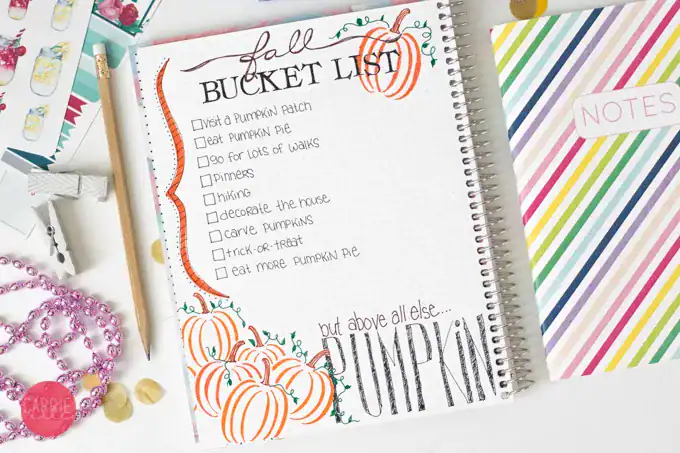 fall
BUCKET LIST
visit a pumpkin patch
eat pumpkin pie
go for lots of walks
pinners
hiking
decorate the house
carve pumpkins
trick-or-treat
eat more pumpkin pie
but above all else...
PUMPKiN
NOTES
CARRIE